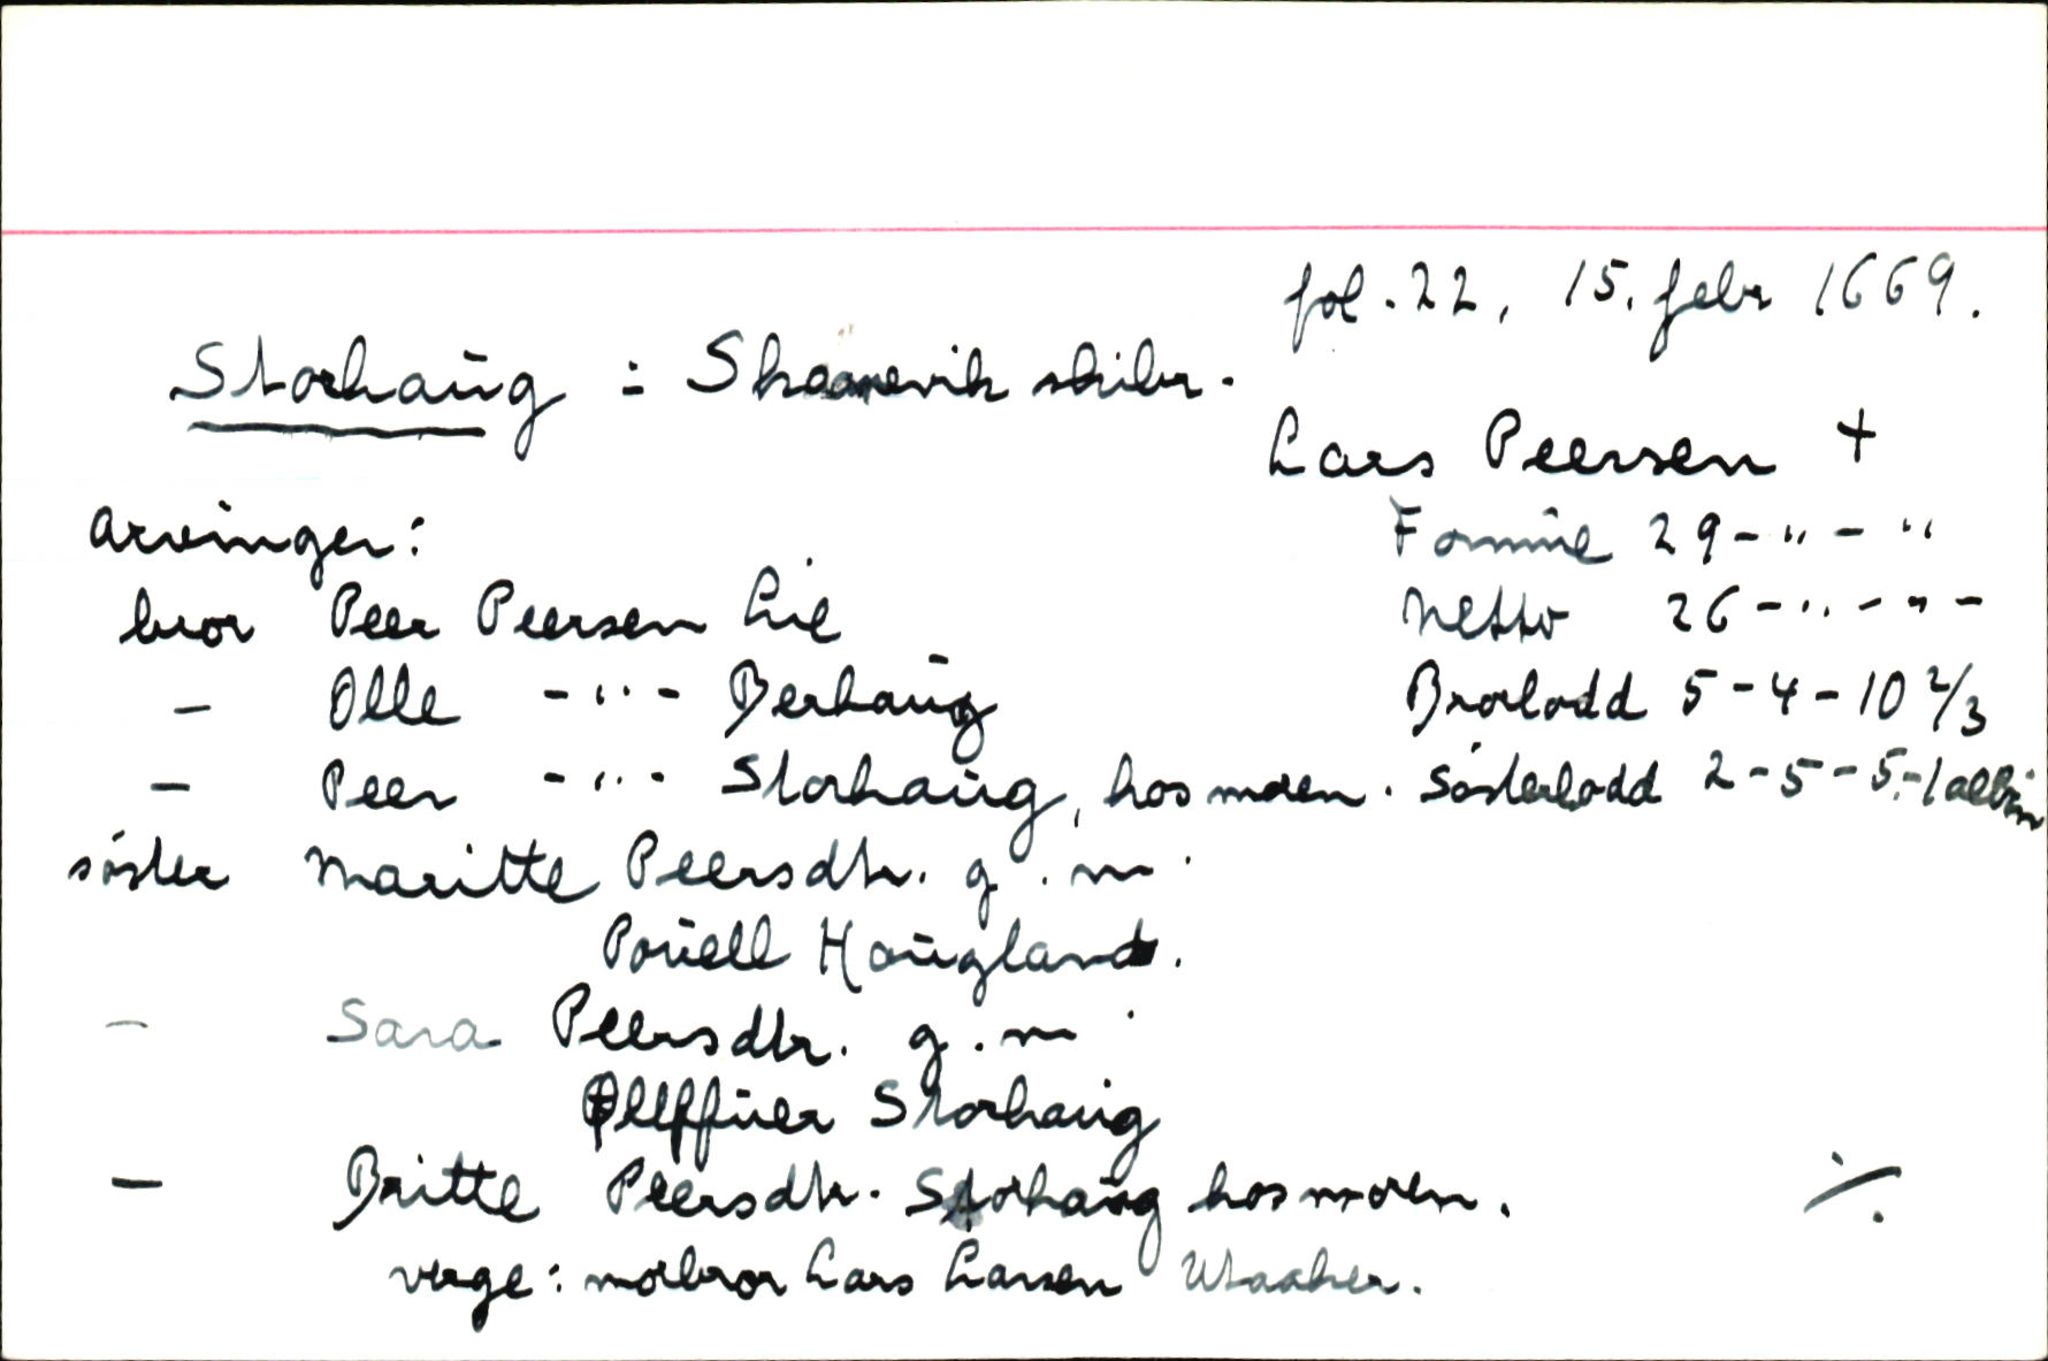 fol. 22, 15. febr 1669.
Storhaug : Skaanevik skibr.
Lars Peersen +
Arvinger:
Formue 29 - " - "
bror Peer Peersen Lie
Netto 26 - " - " -
- Olle - " - Berhaug
Brorlodd 5 - 4 - 10 2/3
- Peer - " - Storhaug, hos moren.
Søsterlodd 2 - 5 - 5 - 1 albm
søster Maritte Peersdtr. g.m.
Pouell Hougland.
- Sara Peersdtr. g.m.
Ølffuer Storhaug
- Britte Peersdtr. Storhaug hos moren.
./.
verge: morbror Lars Larsen Utaaker.